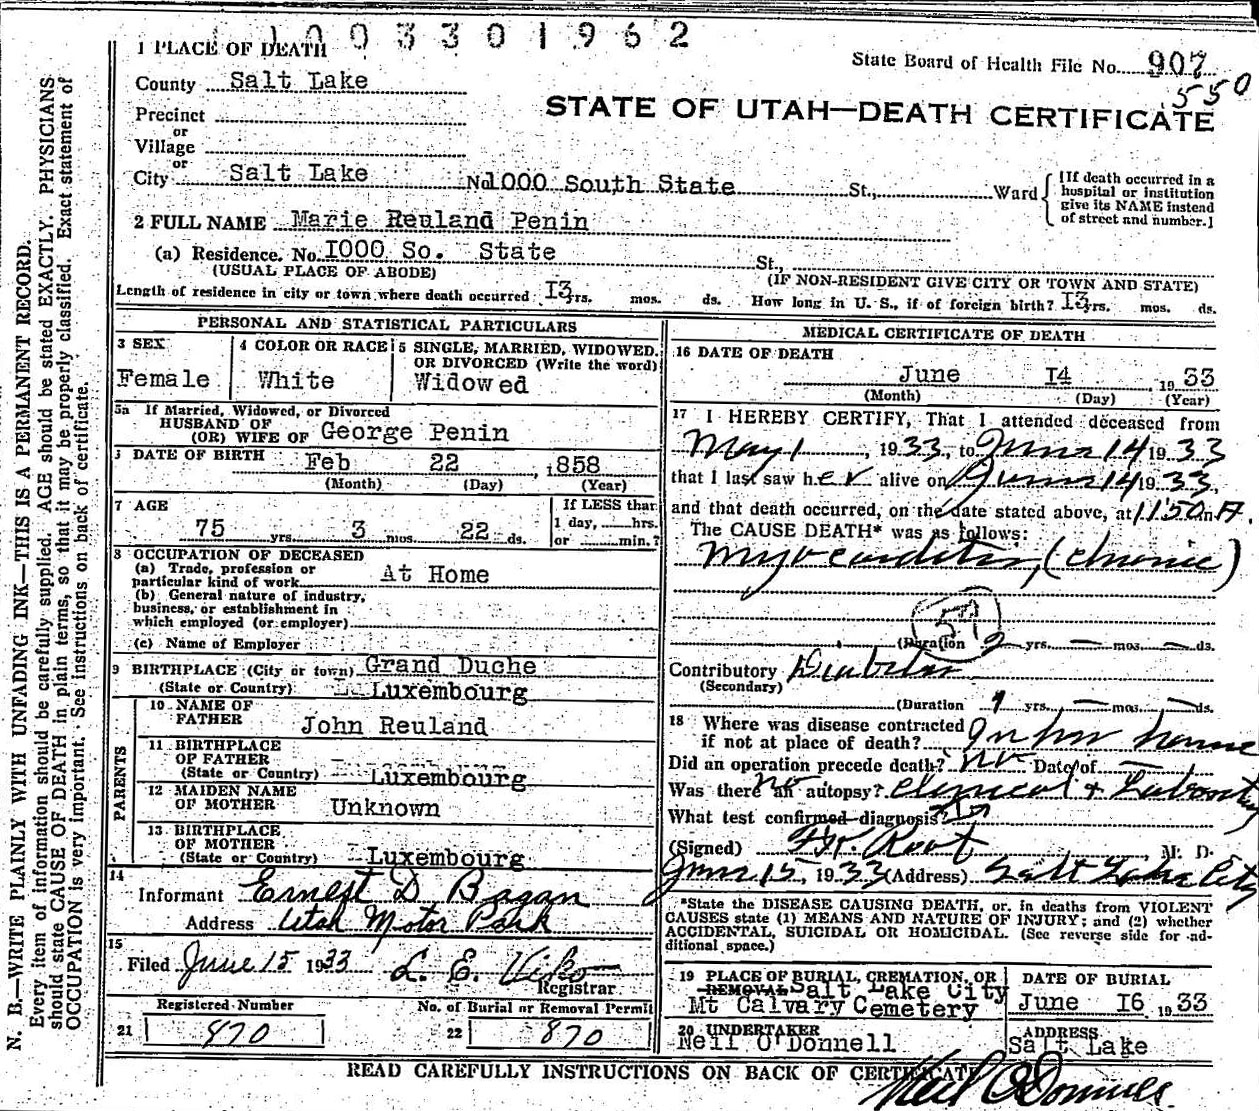 1003301962
1 PLACE OF DEATH
State Board of Health File No. 907
550
County Salt Lake
STATE OF UTAH—DEATH CERTIFICATE
Precinct
or
Village
or
City Salt Lake No. 1000 South State St., Ward
[If death occurred in a hospital or institution give its NAME instead of street and number.]
2 FULL NAME Marie Reuland Penin
(a) Residence. No. 1000 So. State St.,
(USUAL PLACE OF ABODE) (IF NON-RESIDENT GIVE CITY OR TOWN AND STATE)
Length of residence in city or town where death occurred 13 yrs. mos. ds. How long in U. S., if of foreign birth? 13 yrs. mos. ds.
PERSONAL AND STATISTICAL PARTICULARS
3 SEX
Female
4 COLOR OR RACE
White
5 SINGLE, MARRIED, WIDOWED, OR DIVORCED (Write the word)
Widowed
5a If Married, Widowed, or Divorced
HUSBAND OF
(OR) WIFE OF George Penin
DATE OF BIRTH Feb 22, 1858
(Month) (Day) (Year)
7 AGE
75 yrs. 3 mos 22 ds.
If LESS than
1 day, hrs.
or min.?
8 OCCUPATION OF DECEASED
(a) Trade, profession or
particular kind of work At Home
(b) General nature of industry,
business, or establishment in
which employed (or employer)
(c) Name of Employer
9 BIRTHPLACE (City or town) Grand Duche
(State or Country) Luxembourg
PARENTS
10 NAME OF
FATHER John Reuland
11 BIRTHPLACE
OF FATHER
(State or Country) Luxembourg
12 MAIDEN NAME
OF MOTHER Unknown
13 BIRTHPLACE
OF MOTHER
(State or Country) Luxembourg
14
Informant Ernest D Bagan
Address Utah Motor Park
15
Filed June 15 1933 L. E. Viko
Registrar
Registered Number
21 870
No. of Burial or Removal Permit
22 870
MEDICAL CERTIFICATE OF DEATH
16 DATE OF DEATH
June 14 1933
(Month) (Day) (Year)
17 I HEREBY CERTIFY, That I attended deceased from
May 1, 1933, to June 14 1933
that I last saw her alive on June 14 1933,
and that death occurred, on the date stated above, at 1150 A.
The CAUSE DEATH* was as follows:
Myocarditis, (chronic)
(Duration) 2 yrs. — mos. — ds.
Contributory Diabetes
(Secondary)
(Duration yrs. — mos. — ds.
18 Where was disease contracted
if not at place of death? In her home
Did an operation precede death? no Date of —
Was there an autopsy? no Clinical &
What test confirmed diagnosis?
(Signed) Root M. D.
June 15, 1933 (Address) Salt Lake City
*State the DISEASE CAUSING DEATH, or, in deaths from VIOLENT
CAUSES state (1) MEANS AND NATURE OF INJURY; and (2) whether
ACCIDENTAL, SUICIDAL OR HOMICIDAL. (See reverse side for ad-
ditional space.)
19 PLACE OF BURIAL, CREMATION, OR
REMOVAL Salt Lake City
Mt Calvary Cemetery
DATE OF BURIAL
June 16 1933
20 UNDERTAKER
Neil O'Donnell
ADDRESS
Salt Lake
READ CAREFULLY INSTRUCTIONS ON BACK OF CERTIFICATE
Neil O'Donnell
N. B.—WRITE PLAINLY WITH UNFADING INK—THIS IS A PERMANENT RECORD.
Every item of information should be carefully supplied. AGE should be stated EXACTLY. PHYSICIANS
should state CAUSE OF DEATH in plain terms, so that it may be properly classified. Exact statement of
OCCUPATION is very important. See instructions on back of certificate.